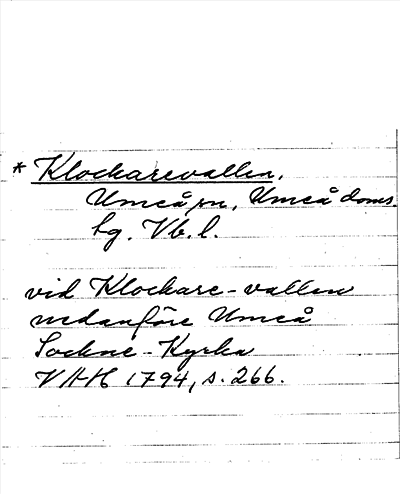 * Klockarevallen,
Umeå sn, Umeå doms.
hg. Vb. l.
vid Klockare-vallen
nedanföre Umeå
Sockne-Kyrka
VAH 1794, s. 266.